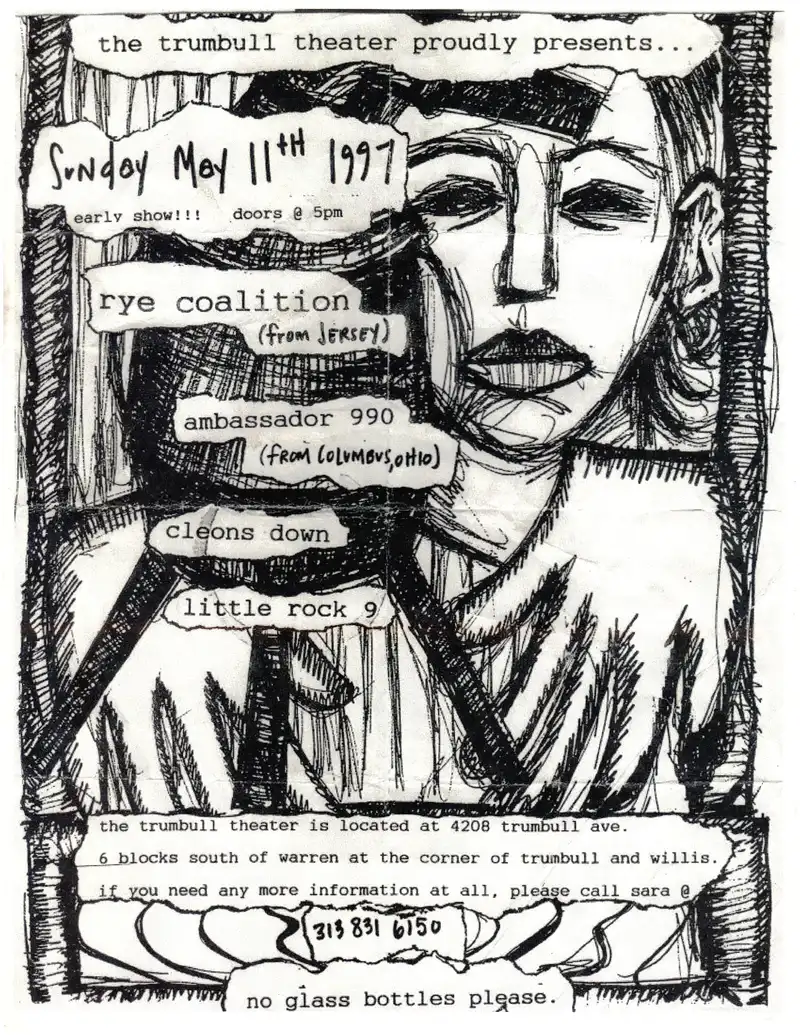 the trumbull theater proudly presents...
Sunday May 11TH 1997
early show!!! doors @ 5pm
rye coalition
(from JERSEY)
ambassador 990
(FROM COLUMBUS, OHIO)
cleons down
little rock 9
the trumbull theater is located at 4208 trumbull ave.
6 blocks south of warren at the corner of trumbull and willis.
if you need any more information at all, please call sara @
313 831 6150
no glass bottles please.